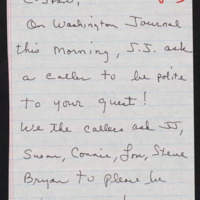 C-Span,
On Washington Journal
this morning, J.J. ask
a caller to be polite
to your guest!
We the callers ask JJ,
Susan, Connie, Lou, Steve
Bryan to please be